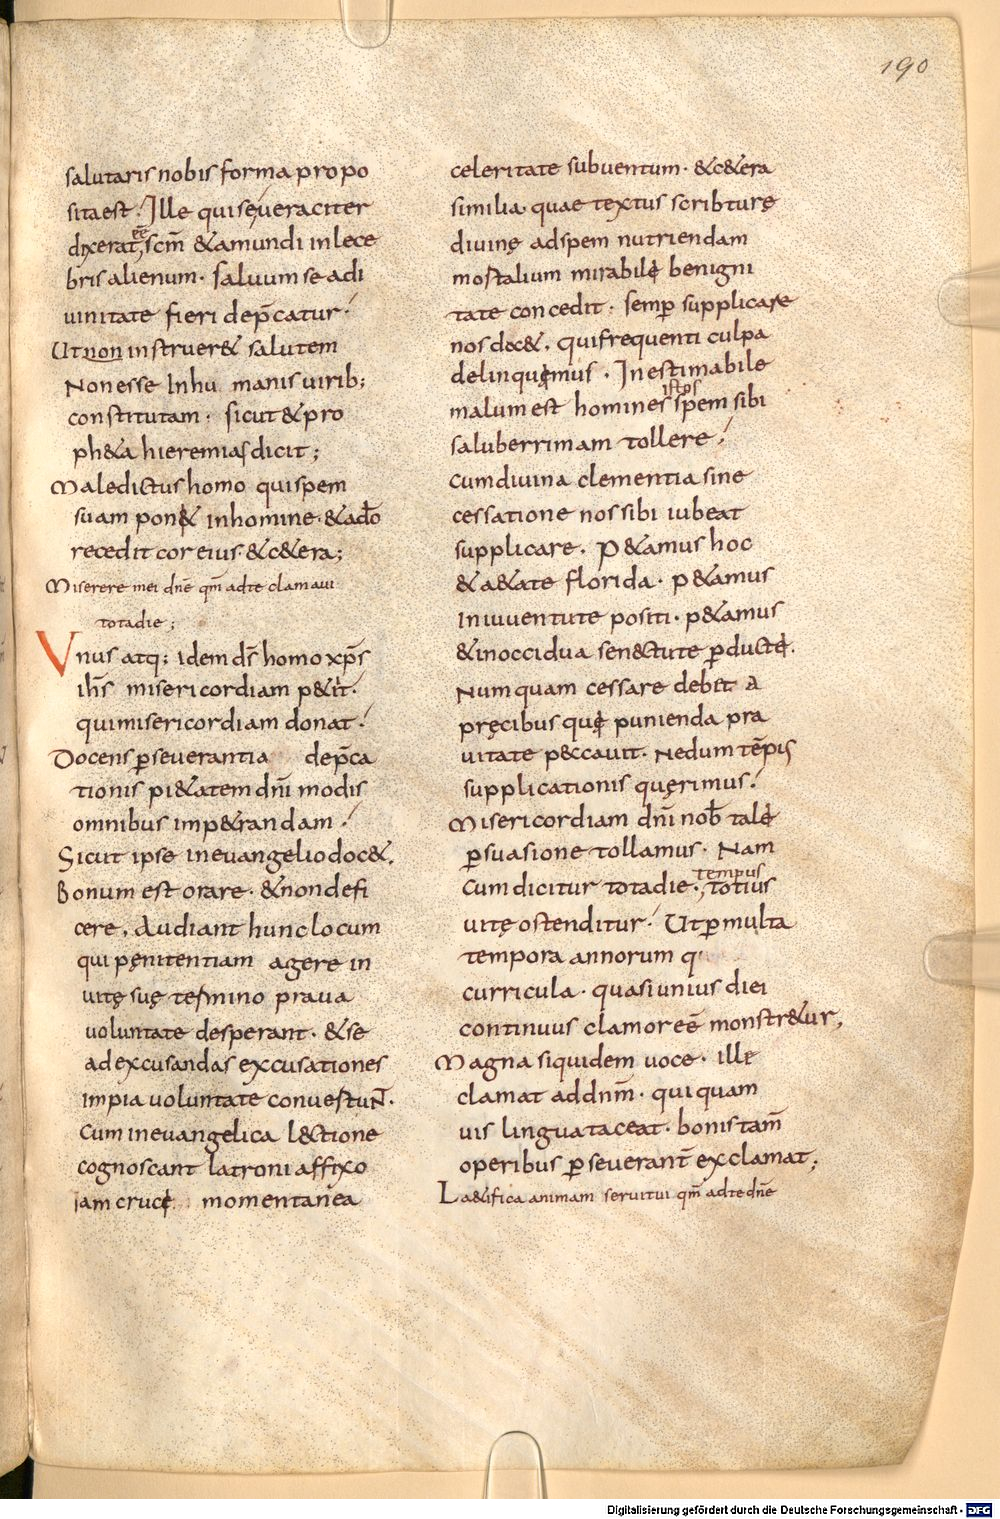 190
salutaris nobis forma propo
sita est. Ille qui sę veraciter
dixerat ee scm̄ & a mundi inlece
bris alienum. saluum se a di
uinitate fieri dep̄catur.
Ut non instruer& salutem
Non esse In hu manis uirib;
constitutam. sicut & pro
ph&a hieremias dicit;
Maledictus homo qui spem
suam pon& in homine. & a dō
recedit cor eius. & c&era;
Miserere mei dn̄e qm̄ ad te clamaui
tota die;
Vnus atq; idem ds̄ homo xp̄s
ih̄s misericordiam p&it.
qui misericordiam donat.
Docens p̱seuerantia dep̄ca
tionis pi&atem dn̄i modis
omnibus imp&randam.
Sicut ipse in euangelio doc&.
Bonum est orare. & non defi
cere. Audiant hunc locum
qui pęnitentiam agere in
uitę suę termino praua
voluntate desperant. & se
ad excusandas excusationes
impia uoluntate conuertuN̄.
Cum in euangelica l&ctione
cognoscant latroni affixo
iam cruce momentanea
celeritate subuentum. & c&era
similia. quae textus scribturę
diuinę ad spem nutriendam
mortalium mirabile benigni
tate concedit. semp̱ supplicare
nos doc&. qui frequenti culpa
delinquemus. Inestimabile
malum est homines istos spem sibi
saluberrimam tollere.
Cum diuina clementia sine
cessatione nos sibi iubeat
supplicare. P&amus hoc
& a&ate florida. p&amus
in iuuentute positi. p&amus
& in occidua sen&ctute p̱ducte.
Numquam cessare debet a
pręcibus que punienda pra
uitate p&ccauit. Nedum tēpis
supplicationis quęrimus.
Misericordiam dn̄i nob̄ tale
p̱suasione tollamus. Nam
cum dicitur tota die. tempus totius
uitę ostenditur. Ut p̱ multa
tempora annorum q
curricula. quasi unius diei
continuus clamor eē monstr&ur,
Magna siquidem uoce. ille
clamat ad dnm̄. qui quam
uis lingua taceat. bonis tam̄
operibus p̱seuerant̄ exclamat;
La&ifica animam serui tui qm̄ ad te dn̄e
Digitalisierung gefördert durch die Deutsche Forschungsgemeinschaft - DFG